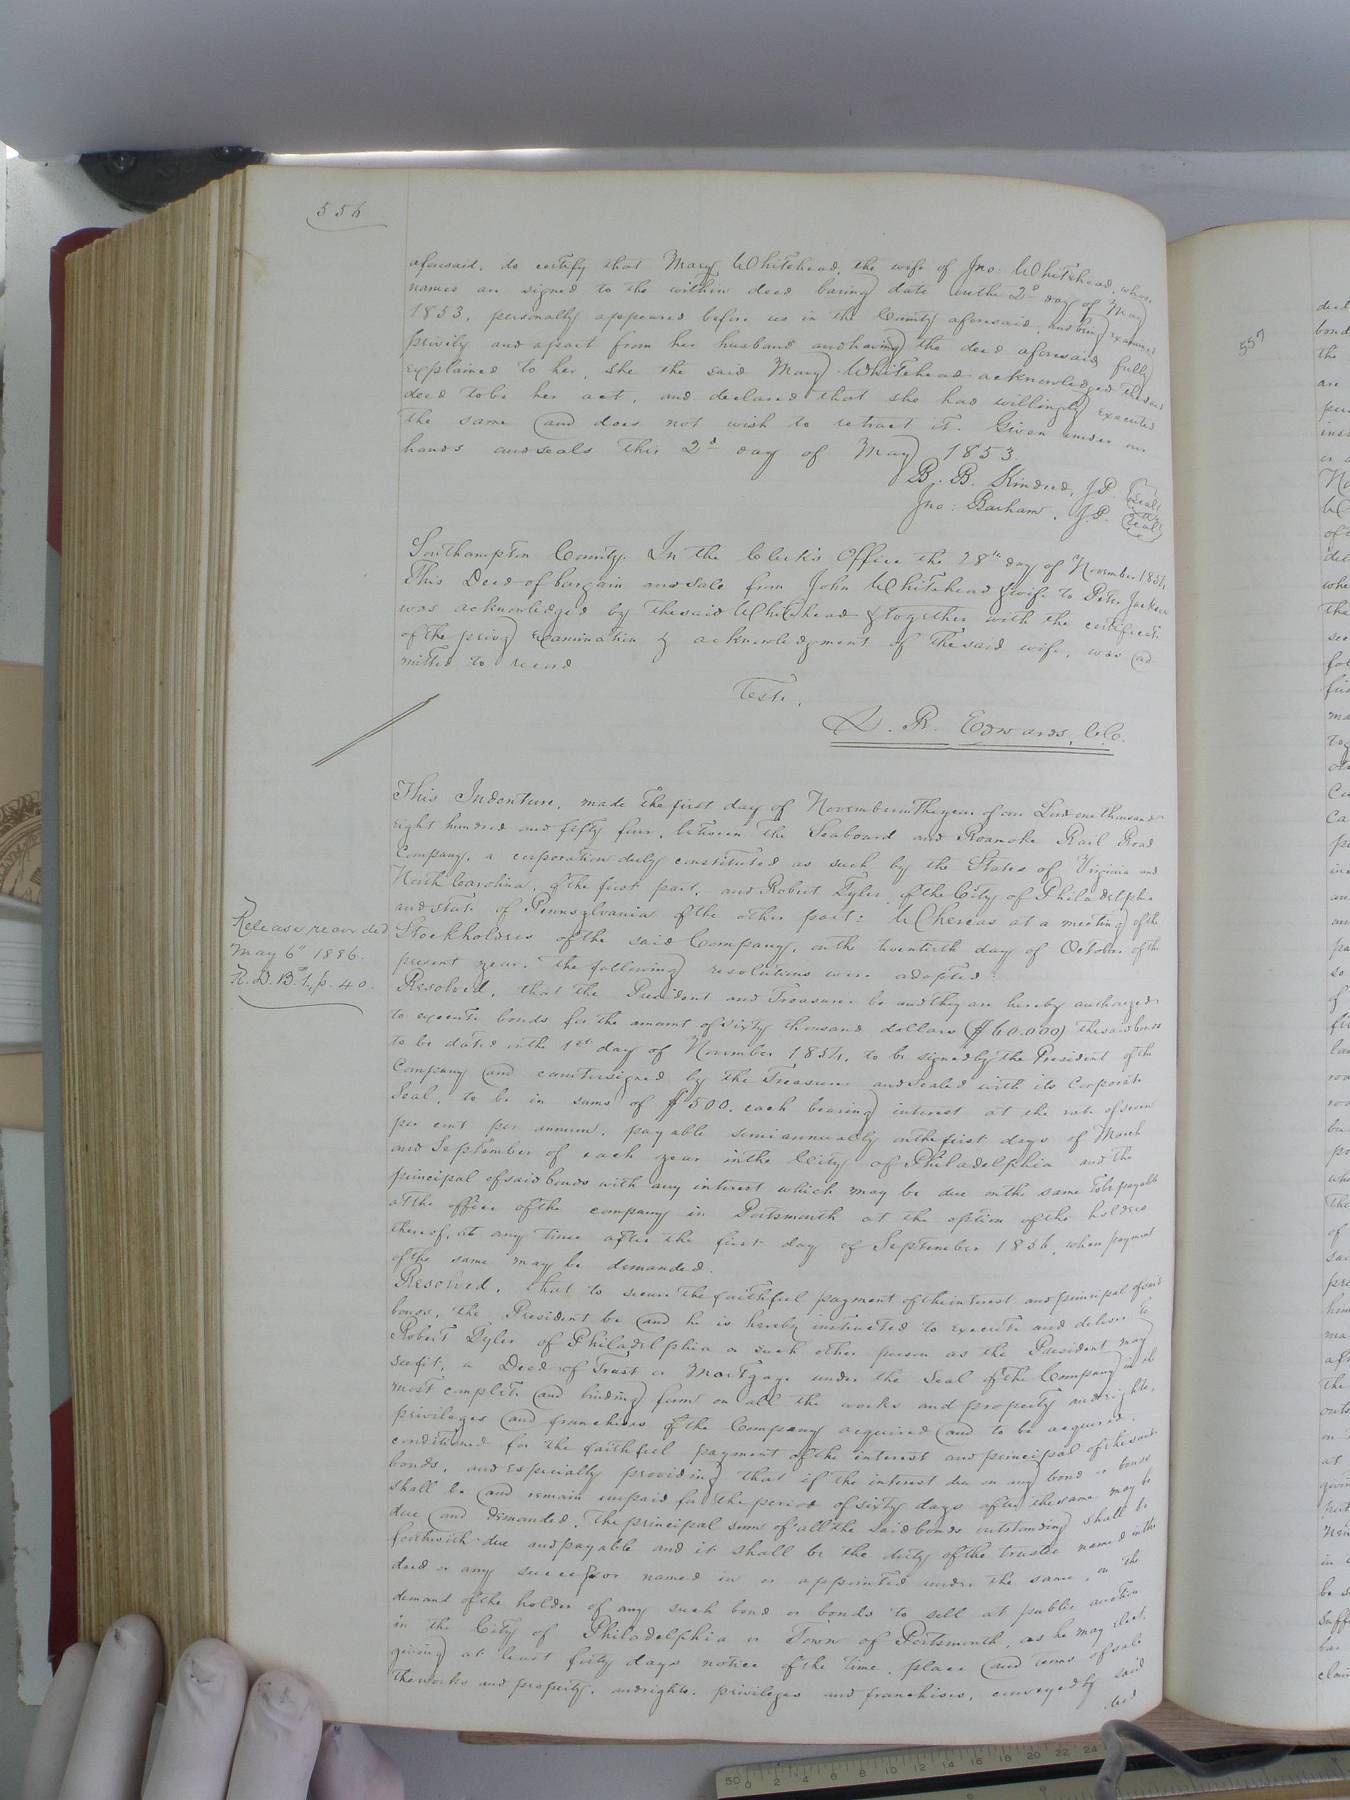 556
aforesaid, do certify that Mary Whitehead, the wife of Jno: Whitehead, whose
names are signed to the within deed baring date on the 2d day of May
1853, personally appeared before us in the County aforesaid, and being examined
privily and apart from her husband and having the deed aforesaid fully
explained to her, she the said Mary Whitehead acknowledged the said
deed to be her act, and declared that she had willingly executed
the same and does not wish to retract it. Given under our
hands and seals this 2d day of May 1853.
B. B. Kindred, J.P. Seal
Jno: Barham, J.P. Seal
Southampton County. In the Clerk's Office the 28th day of November 1854
This Deed of bargain and sale from John Whitehead & wife to Peter Jackson
was acknowledged by the said Whitehead & together with the certificate
of the privy examination & acknowledgment of the said wife, was ad
mitted to record
Teste,
L. R. Edwards, C.C.
This Indenture, made the first day of November in the year of our Lord one thousand
eight hundred and fifty four, between the Seaboard and Roanoke Rail Road
Company, a corporation duly constituted as such by the States of Virginia and
North Carolina, of the first part, and Robert Tyler, of the City of Philadelphia
and State of Pennsylvania of the other part: Whereas at a meeting of the
Stockholders of the said Company, on the twentieth day of October of the
present year, the following resolutions were adopted:
Release recorded
May 6" 1886.
R. D. B. 1, p. 40.
Resolved, that the President and Treasurer be and they are hereby authorized
to execute bonds for the amount of sixty thousand dollars ($60.000) the said bonds
to be dated on the 1st day of November 1854, to be signed by the President of the
Company and countersigned by the Treasurer and sealed with its Corporate
Seal, to be in sums of $500. each bearing interest at the rate of seven
per cent per annum, payable semiannually on the first days of March
and September of each year in the City of Philadelphia and the
principal of said bonds with any interest which may be due on the same to be payable
at the office of the company in Portsmouth at the option of the holders
thereof, at any time after the first day of September 1856, when payment
of the same may be demanded.
Resolved, that to secure the faithful payment of the interest and principal of said
bonds, the President be and he is hereby instructed to execute and deliver to
Robert Tyler of Philadelphia or such other person as the President may
see fit, a Deed of Trust or Mortgage under the Seal of the Company in the
most complete and binding form on all the works and property and rights,
privileges and franchises of the Company acquired and to be acquired,
conditioned for the faithful payment of the interest and principal of the said
bonds, and especially providing that if the interest due on any bond or bonds
shall be and remain unpaid for the period of sixty days after the same may be
due and demanded, the principal sum of all the said bonds outstanding shall be
forthwith due and payable and it shall be the duty of the trustee named in the
deed or any successor named in or appointed under the same, on the
demand of the holder of any such bond or bonds to sell at public auction
in the City of Philadelphia or Town of Portsmouth, as he may elect,
giving at least sixty days notice of the time, place and terms of sale
the works and property, and rights, privileges and franchises, conveyed by said
deed
557